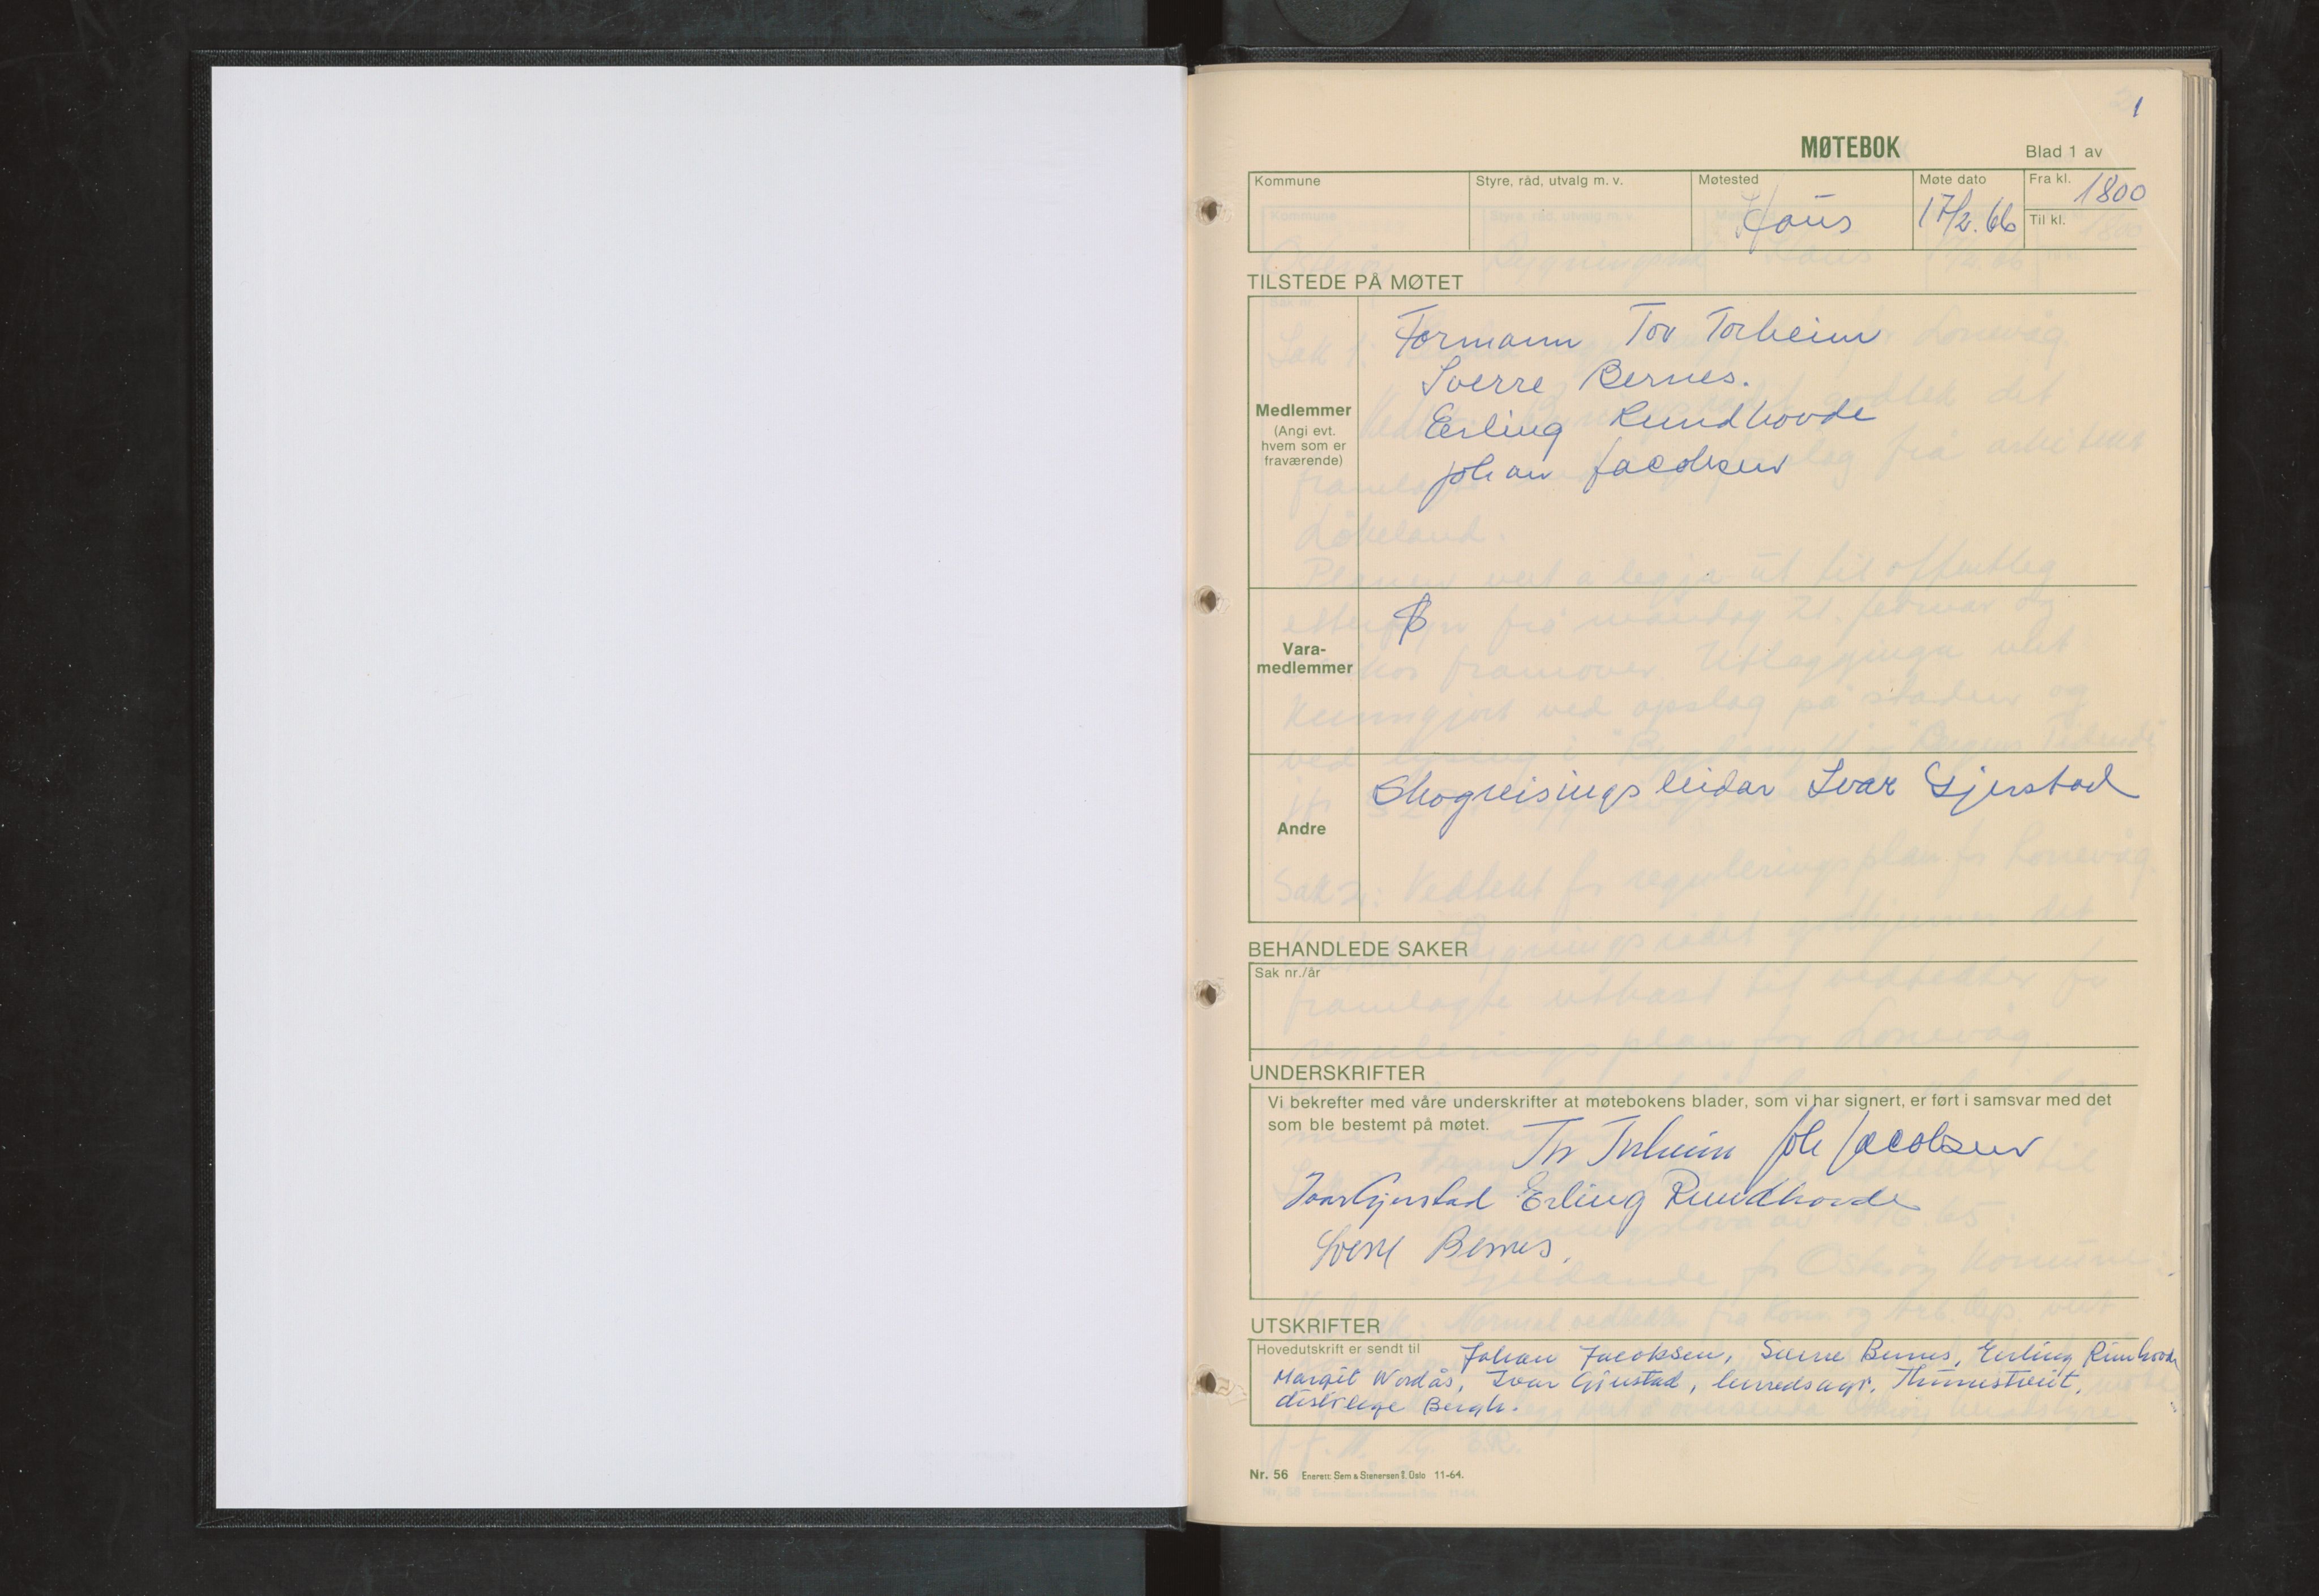 1
MØTEBOK
Blad 1 av
Kommune
Styre, råd, utvalg m. v.
Møtested
Haus
Møte dato
17/2.66
Fra kl. 1800
Til kl.
TILSTEDE PÅ MØTET
Medlemmer
(Angi evt.
hvem som er
fraværende)
Formann Tor Torheim
Sverre Bernes.
Erling Rundhovde
Johan Jacobsen
Vara-
medlemmer
Andre
Skogreisingsleidar Ivar Gjerstad
BEHANDLEDE SAKER
Sak nr./år
UNDERSKRIFTER
Vi bekrefter med våre underskrifter at møtebokens blader, som vi har signert, er ført i samsvar med det
som ble bestemt på møtet.
Tor Torheim Joh Jacobsen
Ivar Gjerstad Erling Rundhovde
Sverre Bernes.
UTSKRIFTER
Hovedutskrift er sendt til Johan Jacobsen, Sverre Bernes, Erling Rundhovde
Margit Nordås, Ivar Gjerstad, herredsagr.
distr.lege Bergh.
Nr. 56 Enerett: Sem & Stenersen %, Oslo 11-64.